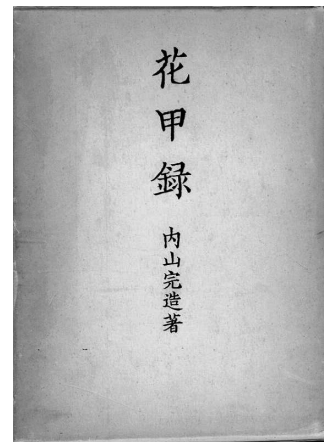 花甲録
内山完造著